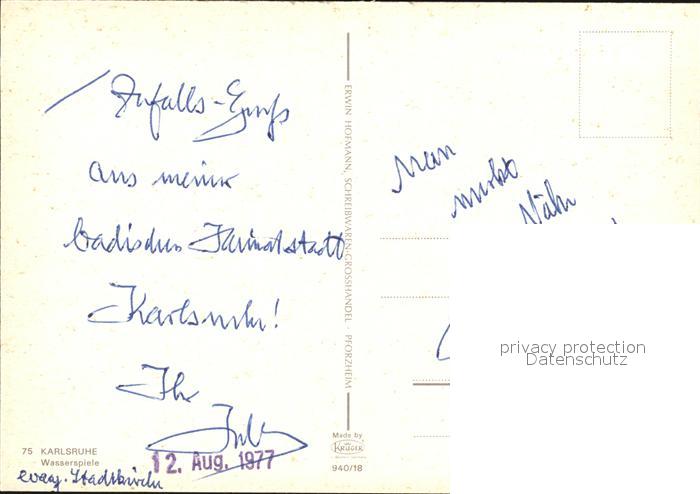 Zufalls-Gruß
aus meiner
badischen Heimatstadt
Karlsruhe!
Ihr
12. Aug. 1977
75 KARLSRUHE
Wasserspiele
evang. Stadtkirche
ERWIN HOFMANN, SCHREIBWAREN-GROSSHANDEL · PFORZHEIM
Made by
KRÜGER
940/18
privacy protection
Datenschutz